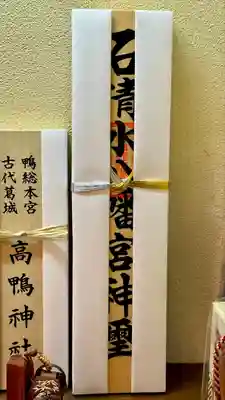 石清水八幡宮神璽
鴨総本宮
古代葛城
高鴨神社